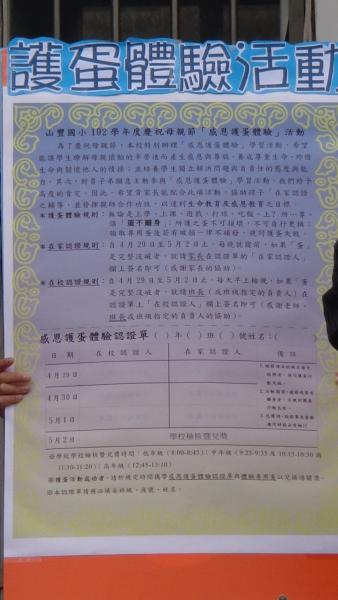 護蛋體驗活動
山豐國小 102 學年度慶祝母親節「感恩護蛋體驗」活動
為了慶祝母親節,本校特別辦理「感恩護蛋體驗」學習活動,希望
能讓學生瞭解母親懷胎的辛勞進而產生感恩與尊親、養成尊重生命、珍惜
生命與關懷他人的情操,並培養學生獨立解決問題與負責任的態度與能
力。其次,對貴子弟願意主動參與「感恩護蛋體驗」學習活動,我們給予
高度的肯定。因此,希望貴家長能配合此項活動,協助孩子「在家認證
之輔導,並發揮親師合作功效,以達到生命教育及感恩教育之目標。
※護蛋體驗規則:無論是上學、上課、遊戲、打球、吃飯、上?所…等
須「蛋不離身」;所護之蛋不可損壞,不可自行更換;
領取專用蛋後若有破損一律不補發,視同護蛋失敗。
※在家認證規則:自 4 月 29 日至 5 月 2 日止,每晚就寢前,如果「蛋」
是完整沒破者,就請家長在認證單的「在家認證人」
欄上簽名即可(感謝家長的協助)。
※在校認證規則:自 4 月 29 日至 5 月 2 日止,每天早上檢視,如果「蛋
是完整沒破者,就請班長(或班級指定的負責人)在
認證單上「在校認證人」欄上簽名即可(感謝老師、
班長或班級指定的負責人的協助)。
感恩護蛋體驗認證單( )年( )班( )號姓名:(
日期 在校認證人 在家認證人 備註
4 月 29 日
4 月 30 日
5 月 1 日
5 月 2 日 學校檢核暨兌獎
※學校學校檢核暨兌獎時間:低年級(8:00-8:45);中年級(9:25-9:35 及 10:15-10:30 與
11:10-11:20);高年級(12:45-13:10)
※護蛋活動成功者,請於規定時間攜帶感恩護蛋體驗認證單與體驗專用蛋以兌換過關獎。
※本認證單請務必填妥班級、座號、姓名。